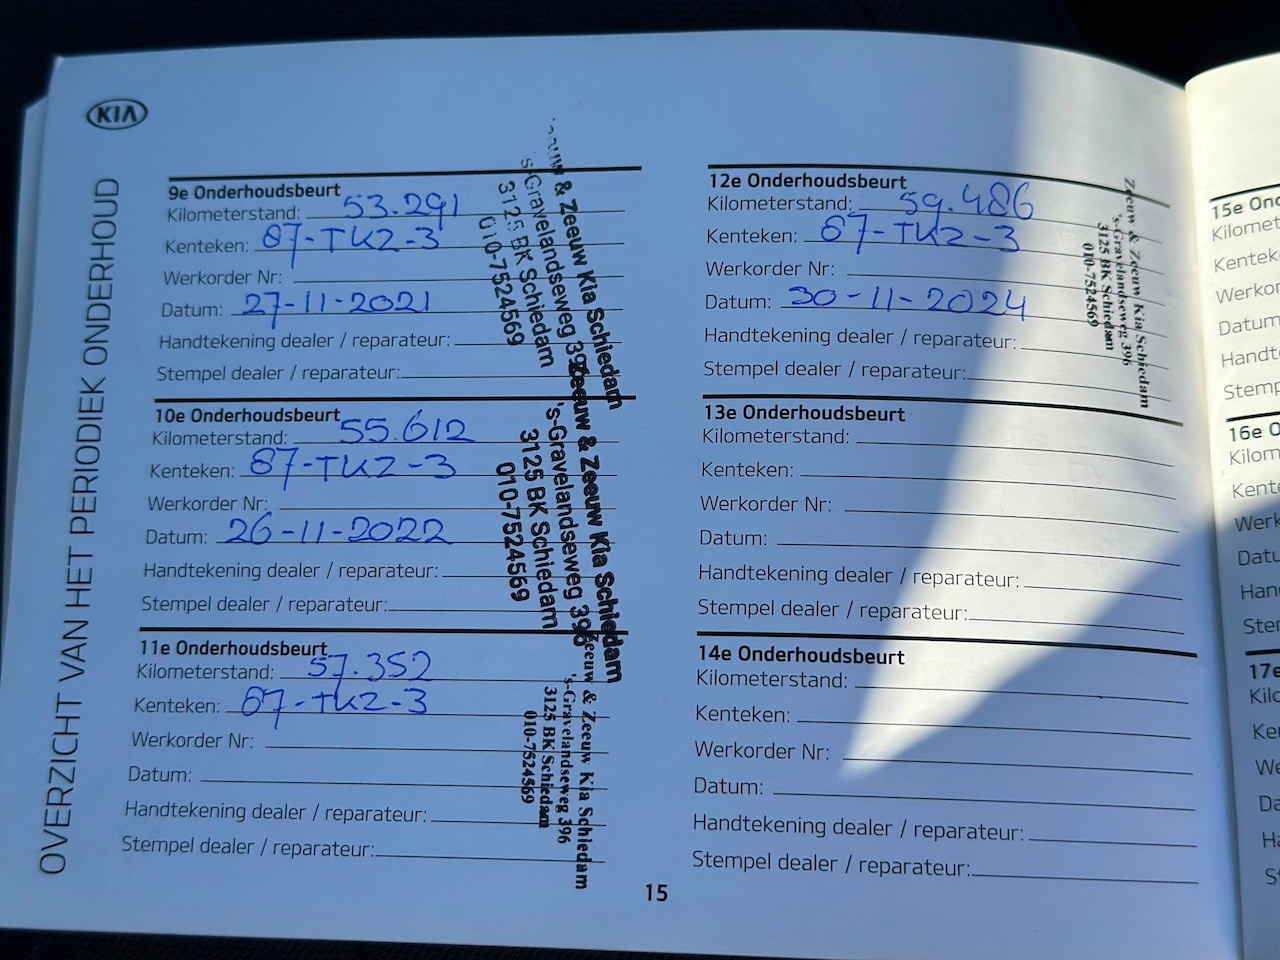 KIA
OVERZICHT VAN HET PERIODIEK ONDERHOUD
9e Onderhoudsbeurt
Kilometerstand: 53.291
Kenteken: 67-TKZ-3
Werkorder Nr:
Datum: 27-11-2021
Handtekening dealer / reparateur:
Stempel dealer / reparateur:
& Zeeuw Kia Schiedam
's-Gravelandseweg 396
3125 BK Schiedam
010-7524569
10e Onderhoudsbeurt
Kilometerstand: 55.612
Kenteken: 67-TKZ-3
Werkorder Nr:
Datum: 26-11-2022
Handtekening dealer / reparateur:
Stempel dealer / reparateur:
Zeeuw & Zeeuw Kia Schiedam
's-Gravelandseweg 396
3125 BK Schiedam
010-7524569
11e Onderhoudsbeurt
Kilometerstand: 57.352
Kenteken: 67-TKZ-3
Werkorder Nr:
Datum:
Handtekening dealer / reparateur:
Stempel dealer / reparateur:
Zeeuw & Zeeuw Kia Schiedam
's-Gravelandseweg 396
3125 BK Schiedam
010-7524569
12e Onderhoudsbeurt
Kilometerstand: 59.486
Kenteken: 67-TKZ-3
Werkorder Nr:
Datum: 30-11-2024
Handtekening dealer / reparateur:
Stempel dealer / reparateur:
Zeeuw & Zeeuw Kia Schiedam
's-Gravelandseweg 396
3125 BK Schiedam
010-7524569
13e Onderhoudsbeurt
Kilometerstand:
Kenteken:
Werkorder Nr:
Datum:
Handtekening dealer / reparateur:
Stempel dealer / reparateur:
14e Onderhoudsbeurt
Kilometerstand:
Kenteken:
Werkorder Nr:
Datum:
Handtekening dealer / reparateur:
Stempel dealer / reparateur:
15
15e
16e
17e